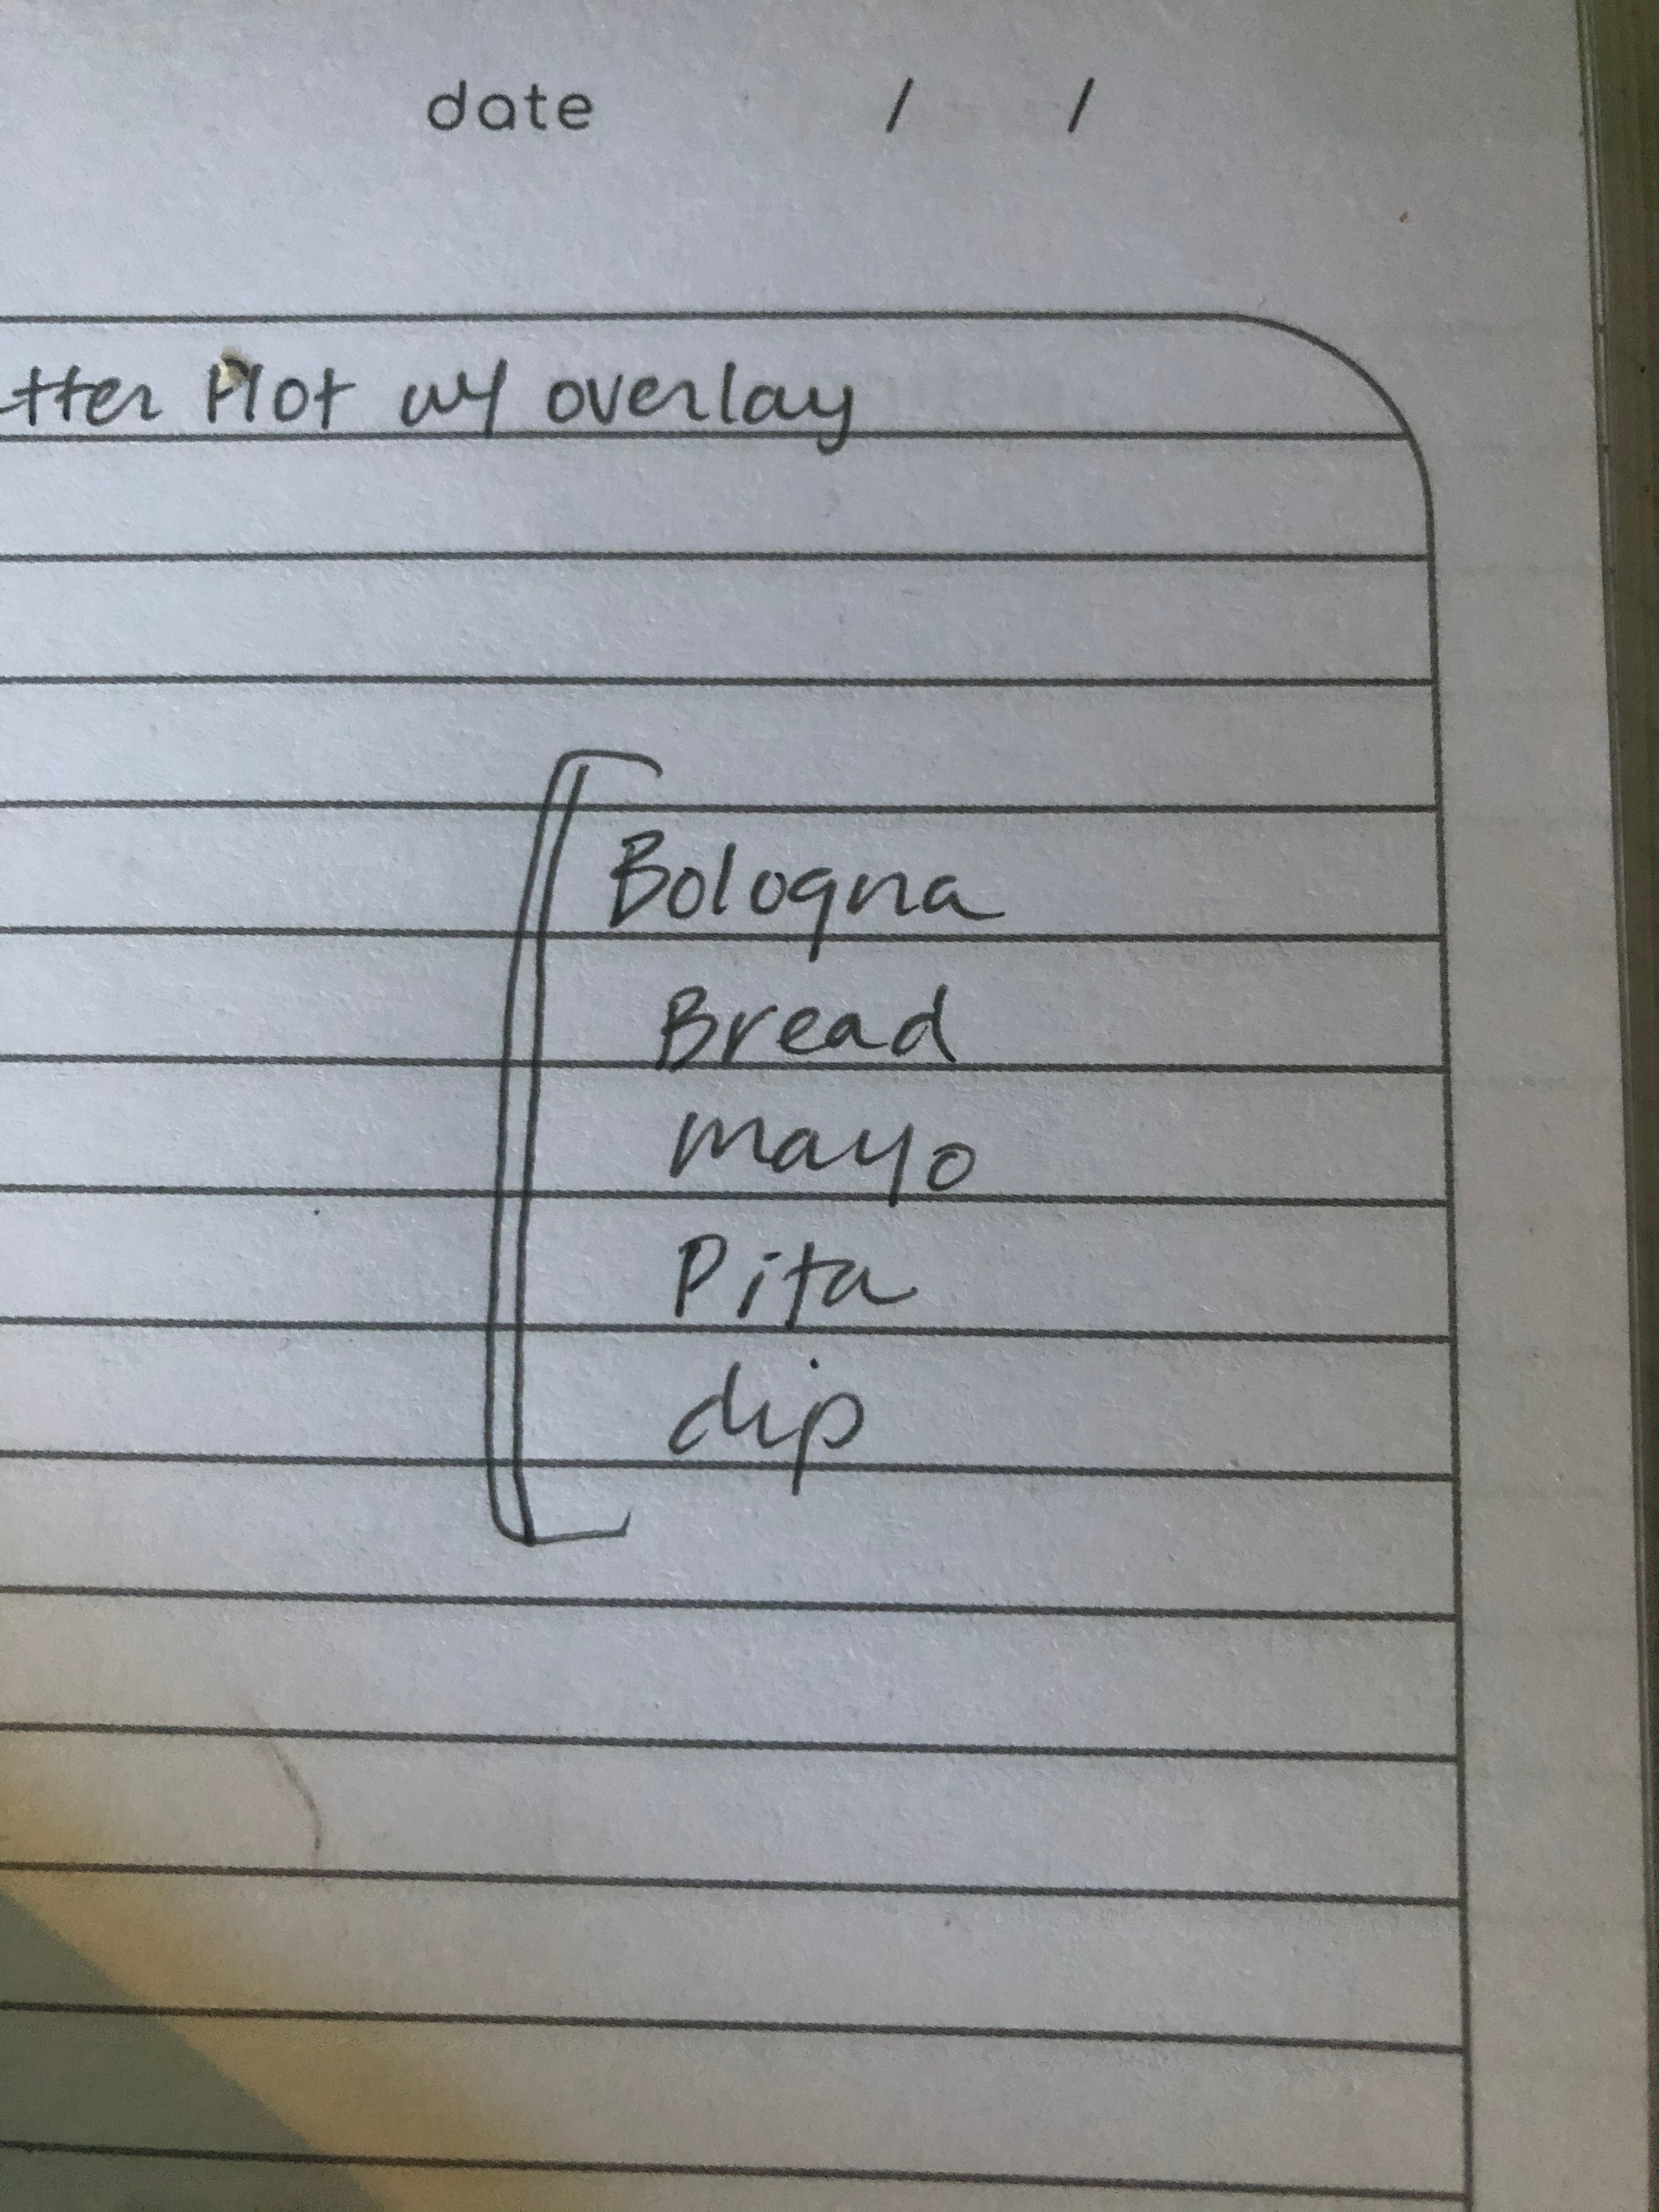 date / /
tter Plot w/ overlay
Bologna
Bread
mayo
Pita
dip